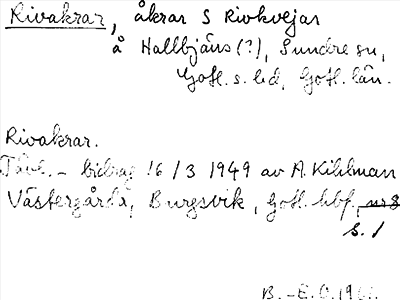 Rivakrar, åkrar S Rivkvejar
å Hallbjäns (?), Sundre sn,
Gotl. s. hd, Gotl. län.
Rivakrar.
Tävl. - bidrag 16/3 1949 av A. Kihlman
Västergårda, Burgsvik, Gotl. hbf,
s. 1
B. - E. O. 196